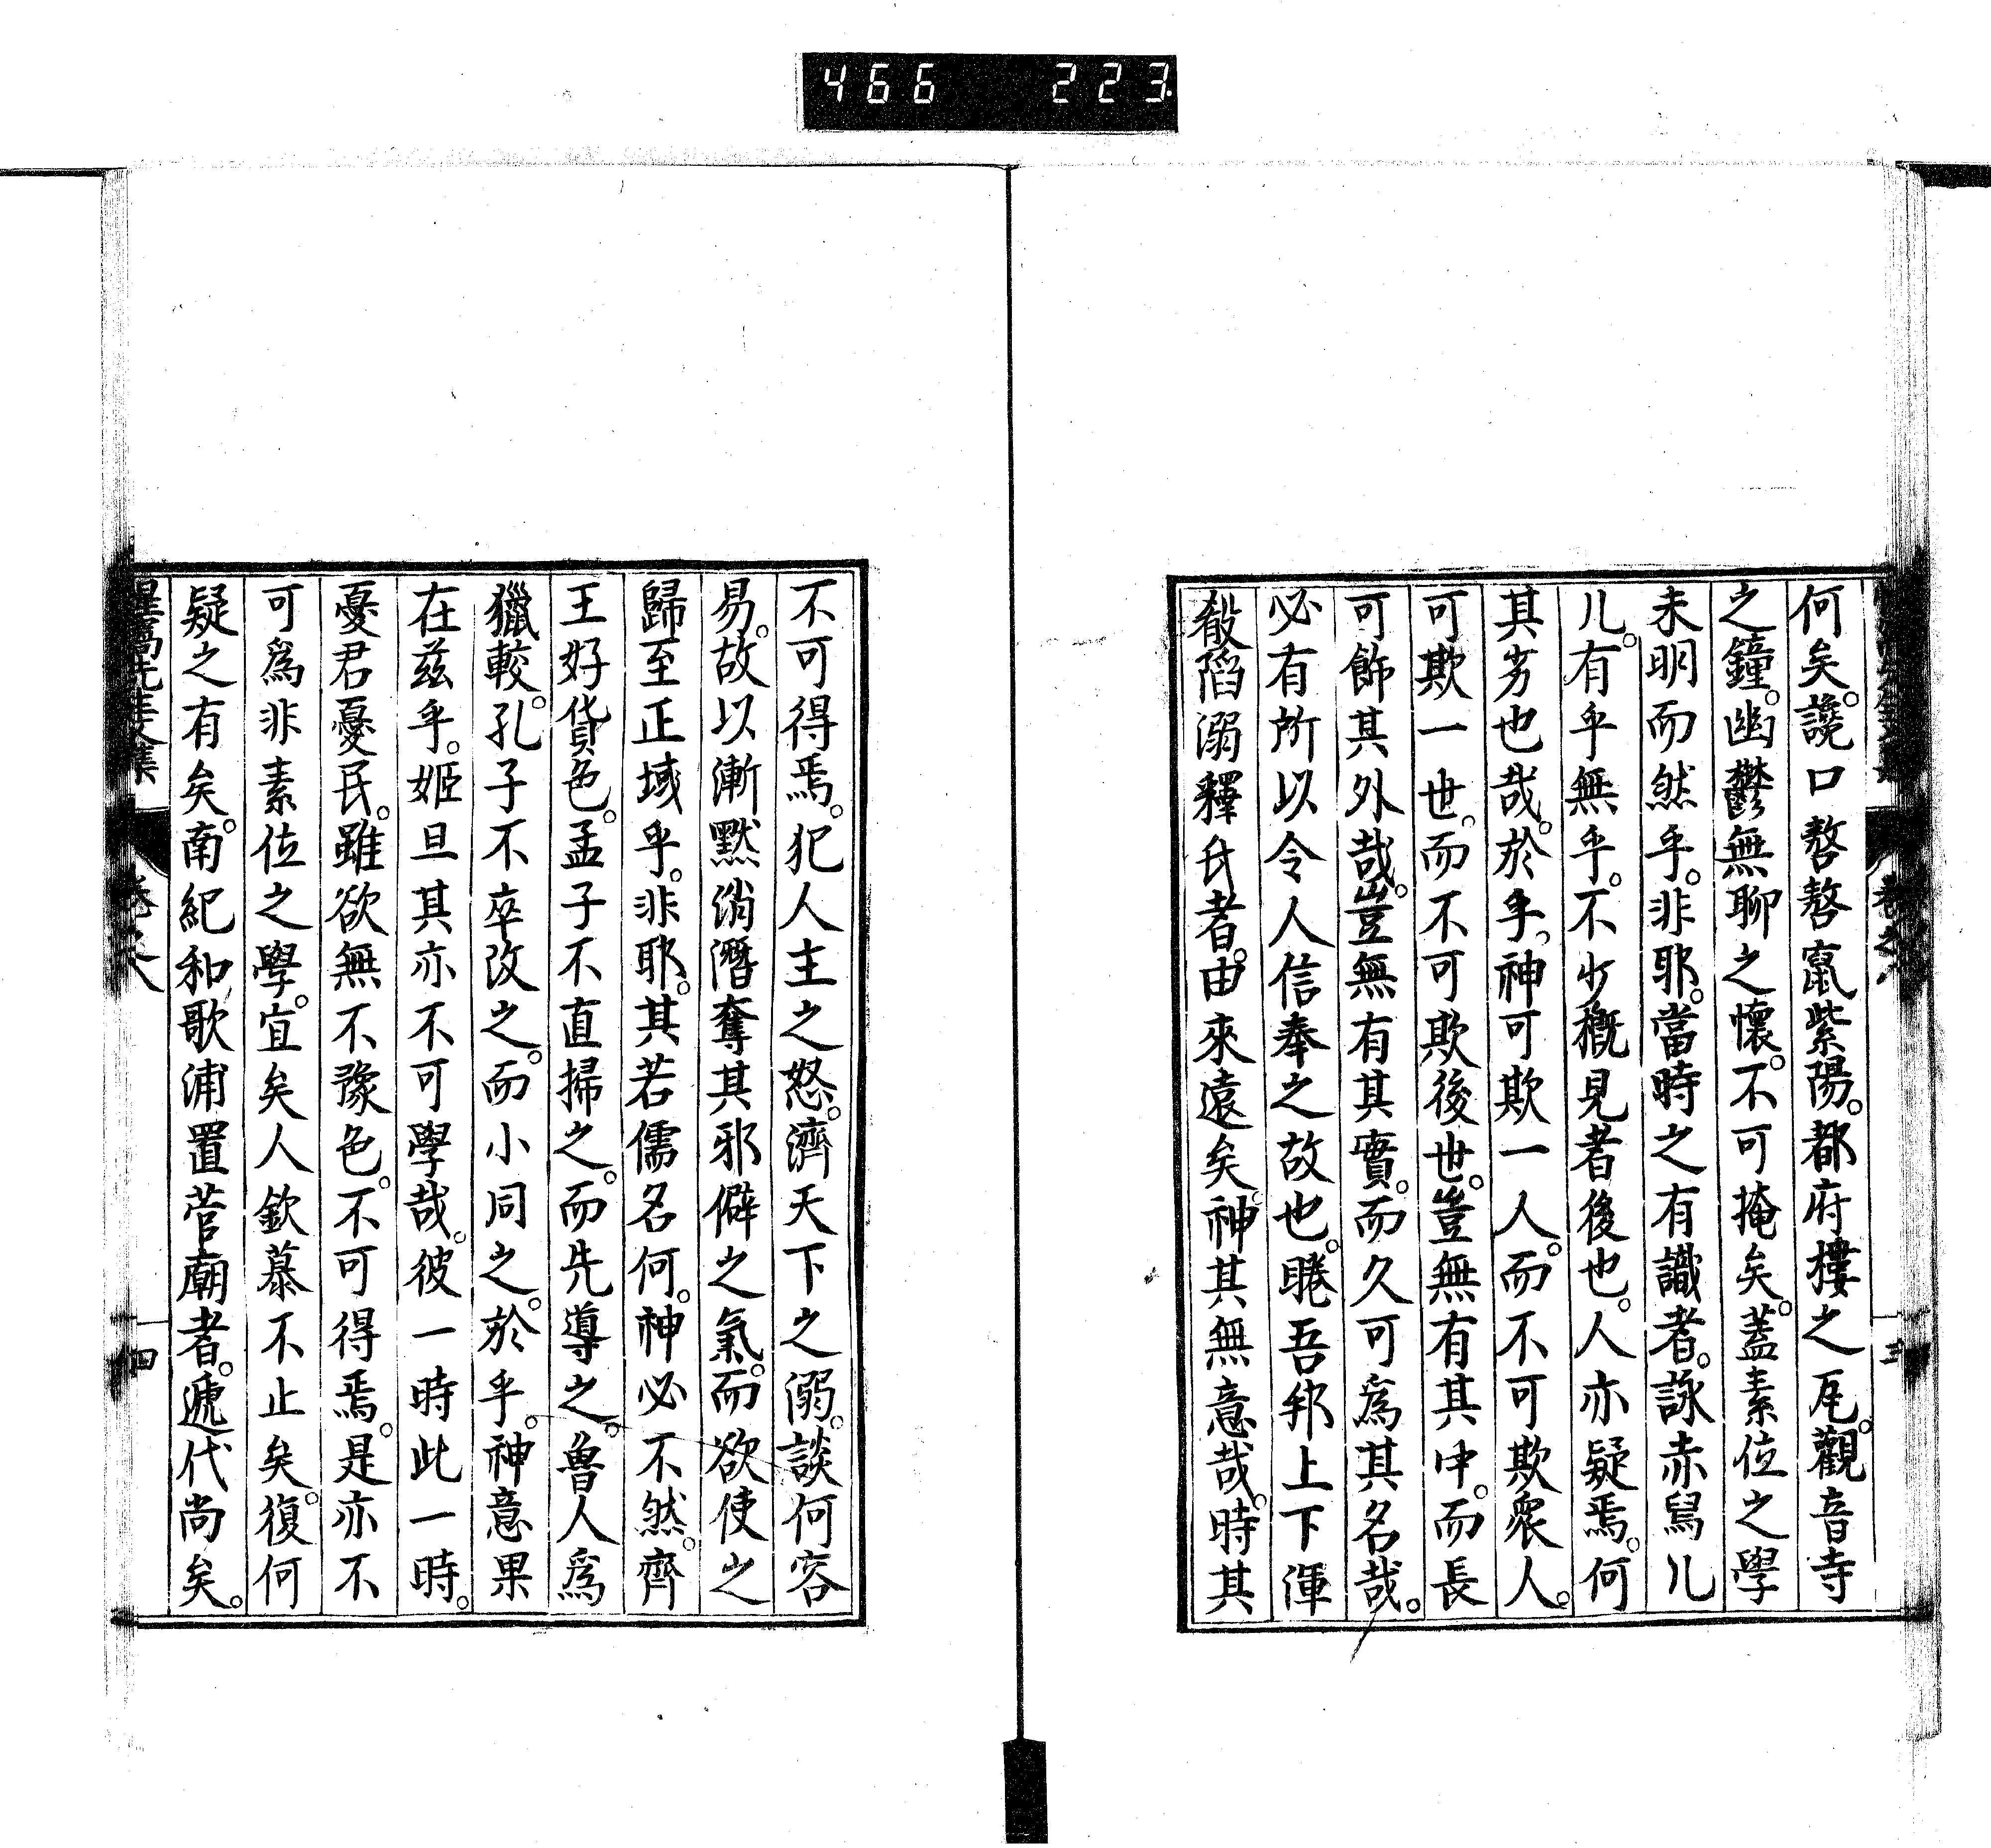 466 223
何矣。讒口嗸嗸竄紫陽。都府樓之瓦。觀音寺
之鐘。幽鬱無聊之懷。不可掩矣。蓋素位之學
未明而然乎。非耶。當時之有識者。詠赤舄几
几。有乎無乎。不少槪見者後也。人亦疑焉。何
其劣也哉。於乎。神可欺一人。而不可欺衆人。
可欺一世。而不可欺後世。豈無有其中。而長
可飾其外哉。豈無有其實。而久可爲其名哉。
必有所以令人信奉之故也。睠吾邦上下渾
殽陷溺釋氏者。由來遠矣。神其無意哉。時其
卷之八
三
不可得焉。犯人主之怒。濟天下之溺。談何容
易。故以漸默消潛奪其邪僻之氣。而欲使之
歸至正域乎。非耶。其若儒名何。神必不然。齊
王好貨色。孟子不直掃之。而先導之。魯人爲
獵較。孔子不卒改之。而小同之。於乎。神意果
在茲乎。姬旦其亦不可學哉。彼一時此一時。
憂君憂民。雖欲無不豫色。不可得焉。是亦不
可爲非素位之學。宜矣人欽慕不止矣。復何
疑之有矣。南紀和歌浦置菅廟者。遞代尚矣。
四